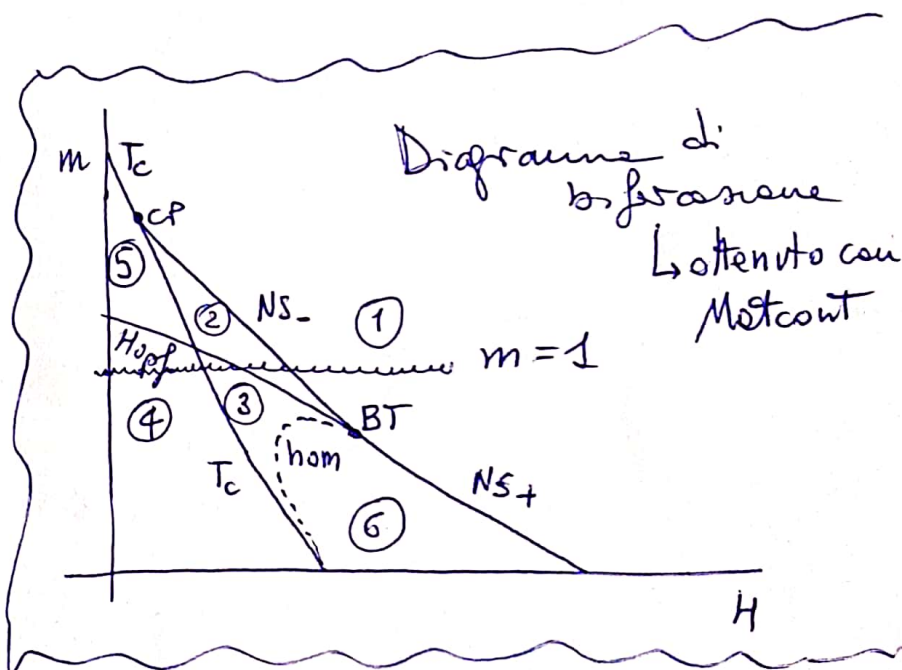 Diagramma di
biforcazione
↳ ottenuto con
Matcont
m
Tc
CP
5
2
NS-
1
Hopf
m = 1
4
3
BT
hom
Tc
NS+
6
H